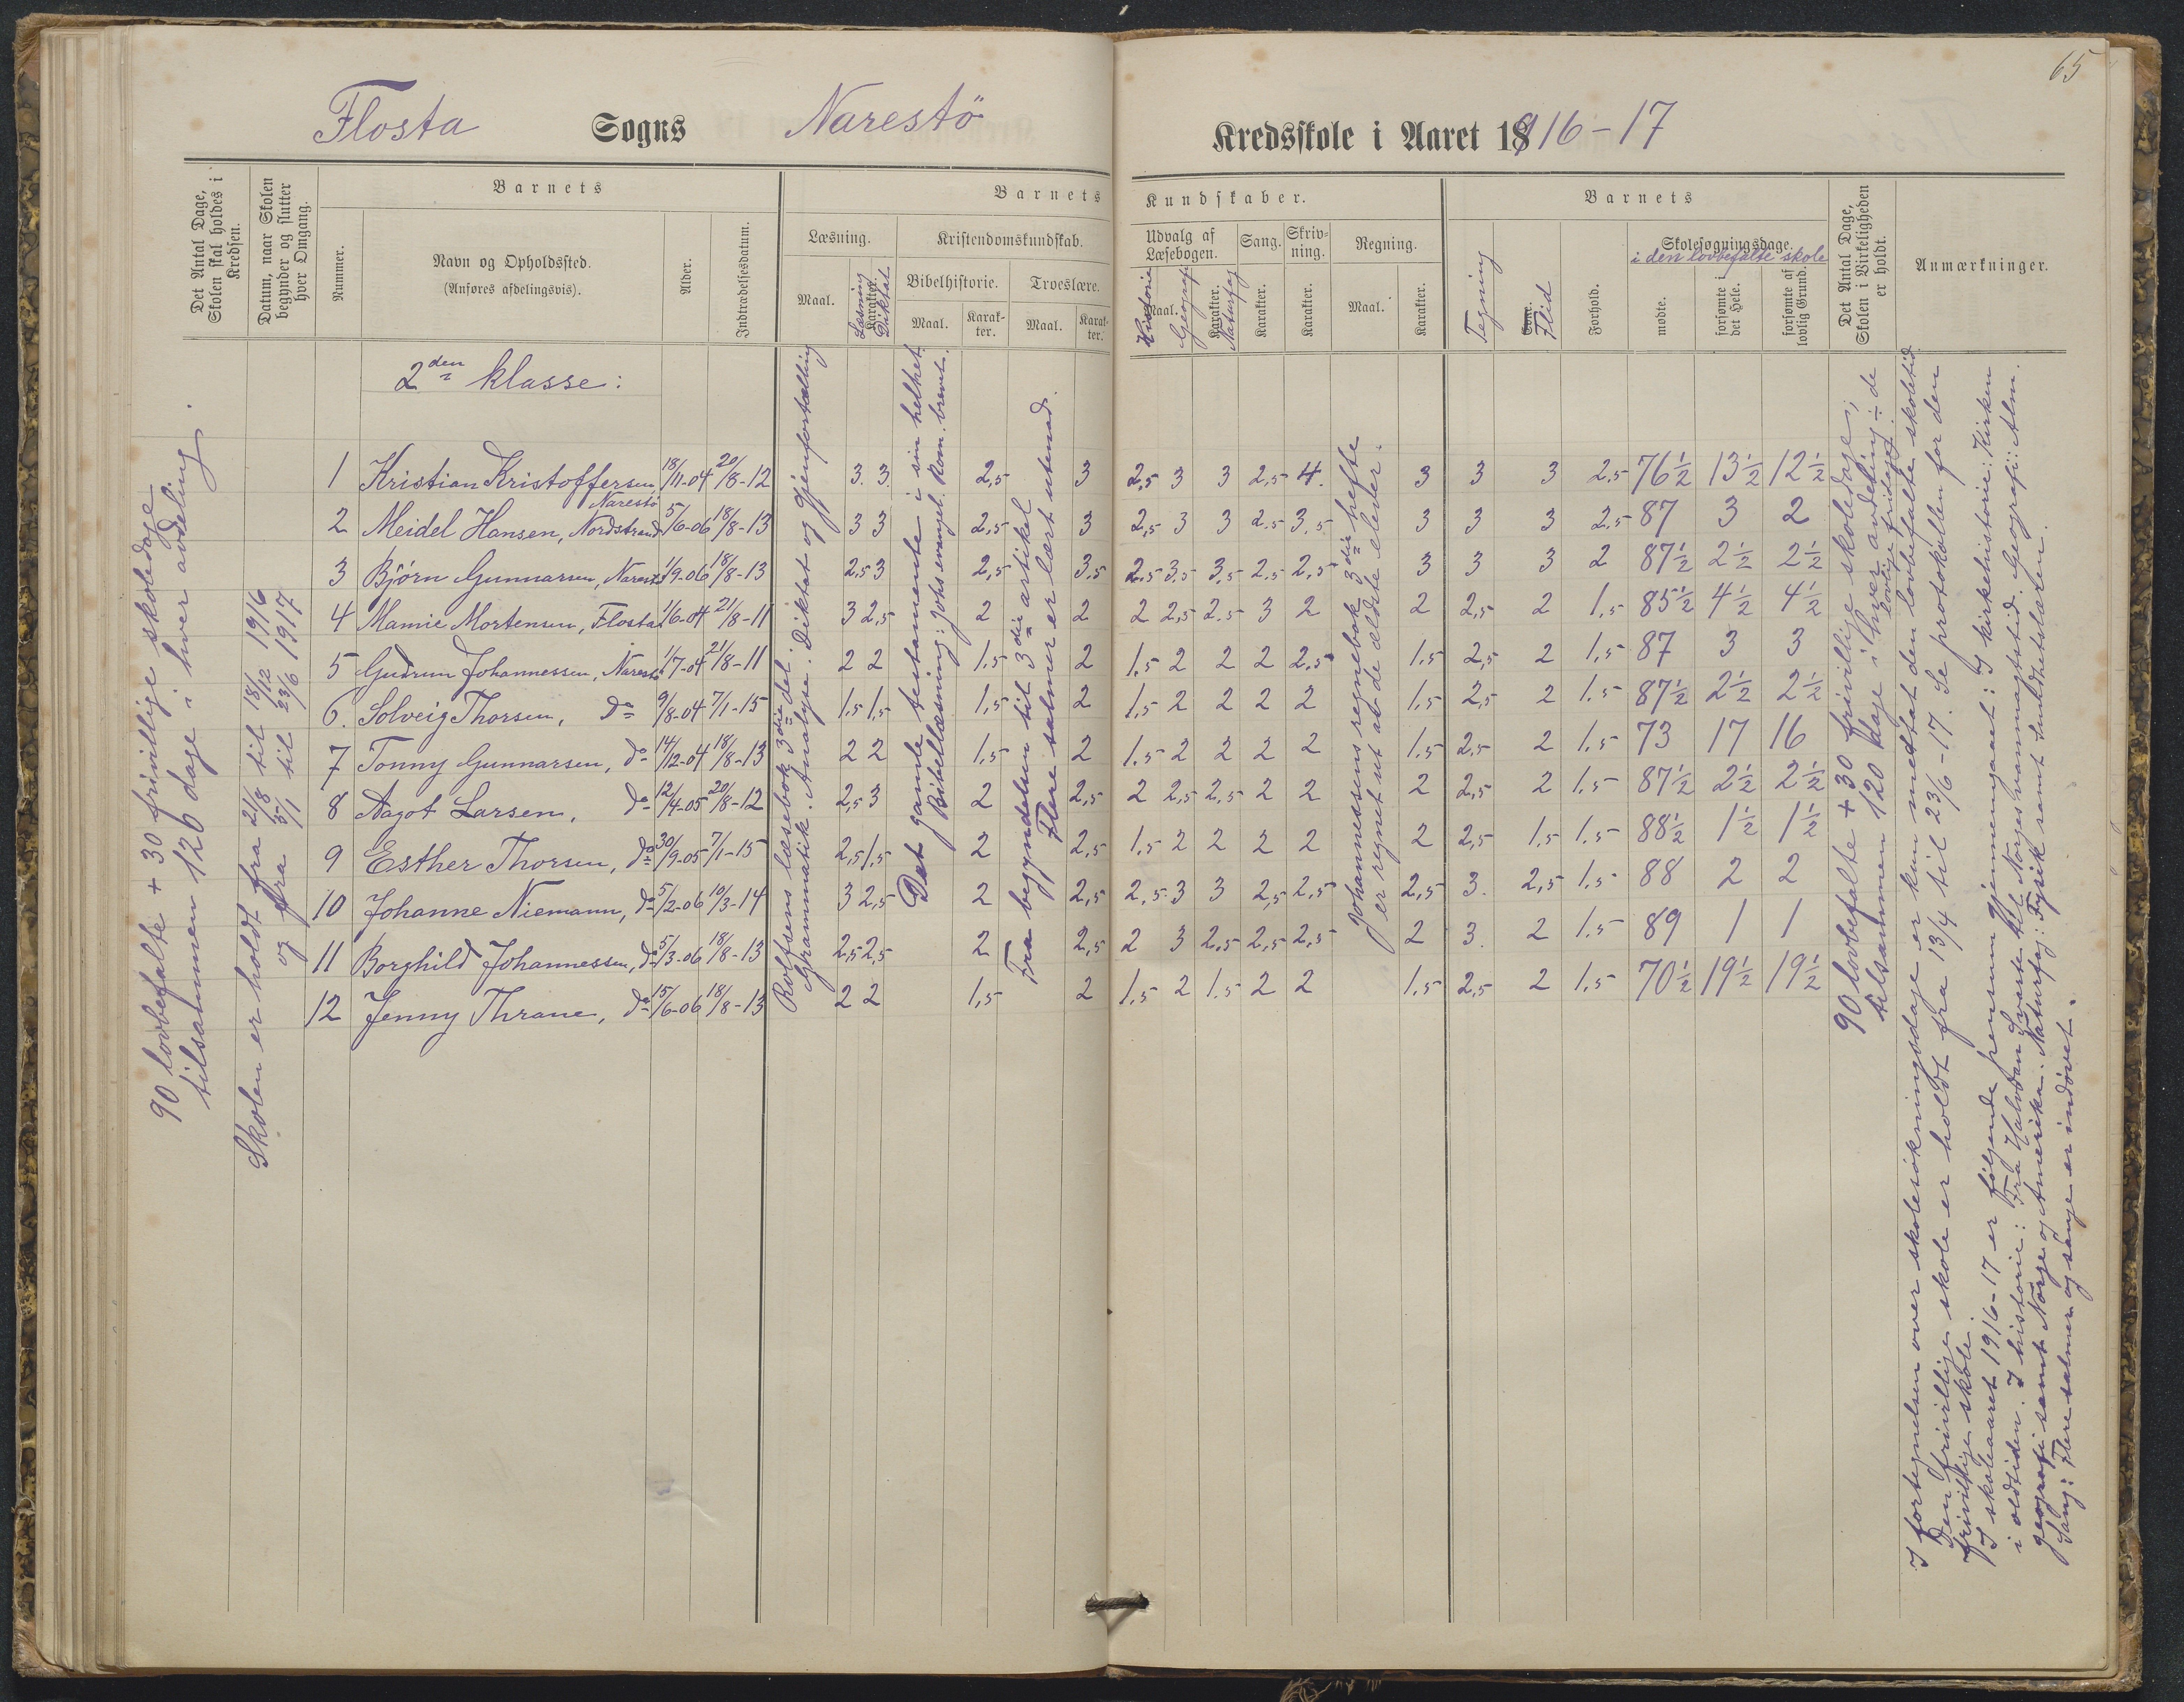 65
Flosta Sogns Narestö Kredsskole i Aaret 18916-17
Det Antal Dage, Skolen skal holdes i Kredsen.
Datum, naar Skolen begynder og slutter hver Omgang.
Barnets
Nummer.
Navn og Opholdssted.
(Anføres afdelingsvis).
Alder.
Indtrædelsesdatum.
Barnets Kundskaber.
Læsning.
Maal.
Læsning
Karakter.
Diktat
Kristendomskundskab.
Bibelhistorie.
Maal.
Karakter.
Troeslære.
Maal.
Karakter.
Udvalg af Læsebogen.
Historie
Maal.
Geografi
Karakter.
Naturfag
Sang.
Karakter.
Skrivning.
Karakter.
Regning.
Maal.
Karakter.
Barnets
Tegning
Evne.
Flid
Forhold.
Skolesøgningsdage.
i den lovbefalte skole
mødte.
forsømte i det Hele.
forsømte af lovlig Grund.
Det Antal Dage, Skolen i Virkeligheden er holdt.
Anmærkninger.
2den klasse:
90 lovbefalte + 30 frivillige skoledage
tilsammen 120 dage i hver avdeling.
Skolen er holdt fra 21/8 til 18/12 1916
og fra 5/1 til 23/6 1917
1 Kristian Kristoffersen, Narestö 18/11-04 20/8-12 3. 3. 2,5 3 2,5 3 3 2,5 4. 3 3 3 2,5 76½ 13½ 12½
2 Meidel Hansen, Nordstrand 5/6-06 18/8-13 3 3 2,5 3 2,5 3 3 2,5 3,5 3 3 3 2,5 87 3 2
3 Bjørn Gunnarsen, Narestö 1/9-06 18/8-13 2,5 3 2,5 3,5 2,5 3,5 3,5 2,5 2,5 3 3 3 2 87½ 2½ 2½
4 Mamie Mortensen, Flosta 1/6-04 21/8-11 3 2,5 2 2 2 2,5 2,5 3 2 2 2,5 2 1,5 85½ 4½ 4½
5 Gudrun Johannessen, Narestö 1/7-04 21/8-11 2 2 1,5 2 1,5 2 2 2 2,5 1,5 2,5 2 1,5 87 3 3
6. Solveig Thorsen, do 9/8-04 7/1-15 1,5 1,5 1,5 2 1,5 2 2 2 2 1,5 2,5 2 1,5 87½ 2½ 2½
7 Tonny Gunnarsen, do 14/12-04 18/8-13 2 2 1,5 2 1,5 2 2 2 2 1,5 2,5 2 1,5 73 17 16
8 Aagot Larsen, do 12/4-05 20/8-12 2,5 3 2 2,5 2 2,5 2,5 2 2 2 2,5 2 1,5 87½ 2½ 2½
9 Esther Thorsen, do 30/9-05 7/1-15 2,5 1,5 2 2,5 1,5 2 2 2 2 2 2,5 1,5 1,5 88½ 1½ 1½
10 Johanne Niemann, do 5/2-06 10/3-14 3 2,5 2 2,5 2,5 3 3 2,5 2,5 2,5 3. 2,5 1,5 88 2 2
11 Borghild Johannessen, do 5/3-06 18/8-13 2,5 2,5 2 2,5 2 3 2,5 2,5 2,5 2 3. 2 1,5 89 1 1
12 Jenny Thrane, do 15/6-06 18/8-13 2 2 1,5 2 1,5 2 1,5 2 2 1,5 2,5 2 1,5 70½ 19½ 19½
Rolfsens læsebok 3die del.
Grammatik. Analyse. Diktat og Gjenfortælling
Det gamle testamente i sin helhet.
Bibellæsning: Johs evangel. Rom. brevet.
Fra begyndelsen til 3die artikel
Flere salmer er lært utenad.
Johannessens regnebok 3die hefte
er regnet ut at de ældste elever.
90 lovbefalte + 30 frivillige skoledage;
tilsammen 120 dage i hver avdeling ÷ de
lovlige fridage.
I fortegnelsen over skolesøkningsdage er kun medtat den lovbefalte skoletid.
Den frivillige skole er holdt fra 13/4 til 23/6-17. Se protokollen for den
frivillige skole.
I skoleaaret 1916-17 er følgende pensum gjennemgaaet: I kirkehistorie: Kirken
i oldtiden. I historie: Fra Halvdan Svarte til Norges vanmagtstid. Geografi: Alm.
geografi samt Norge og Amerika. Naturfag: Fysik samt sundhetslæren.
Sang: Flere salmer og sange er indøvet.